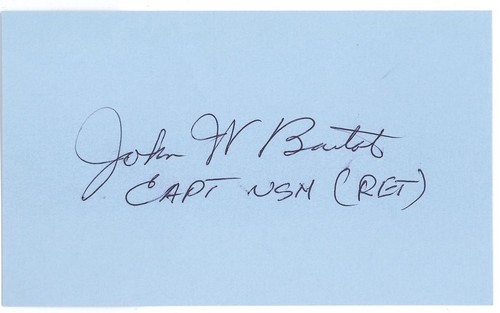 John W Bartol
CAPT USN (RET)